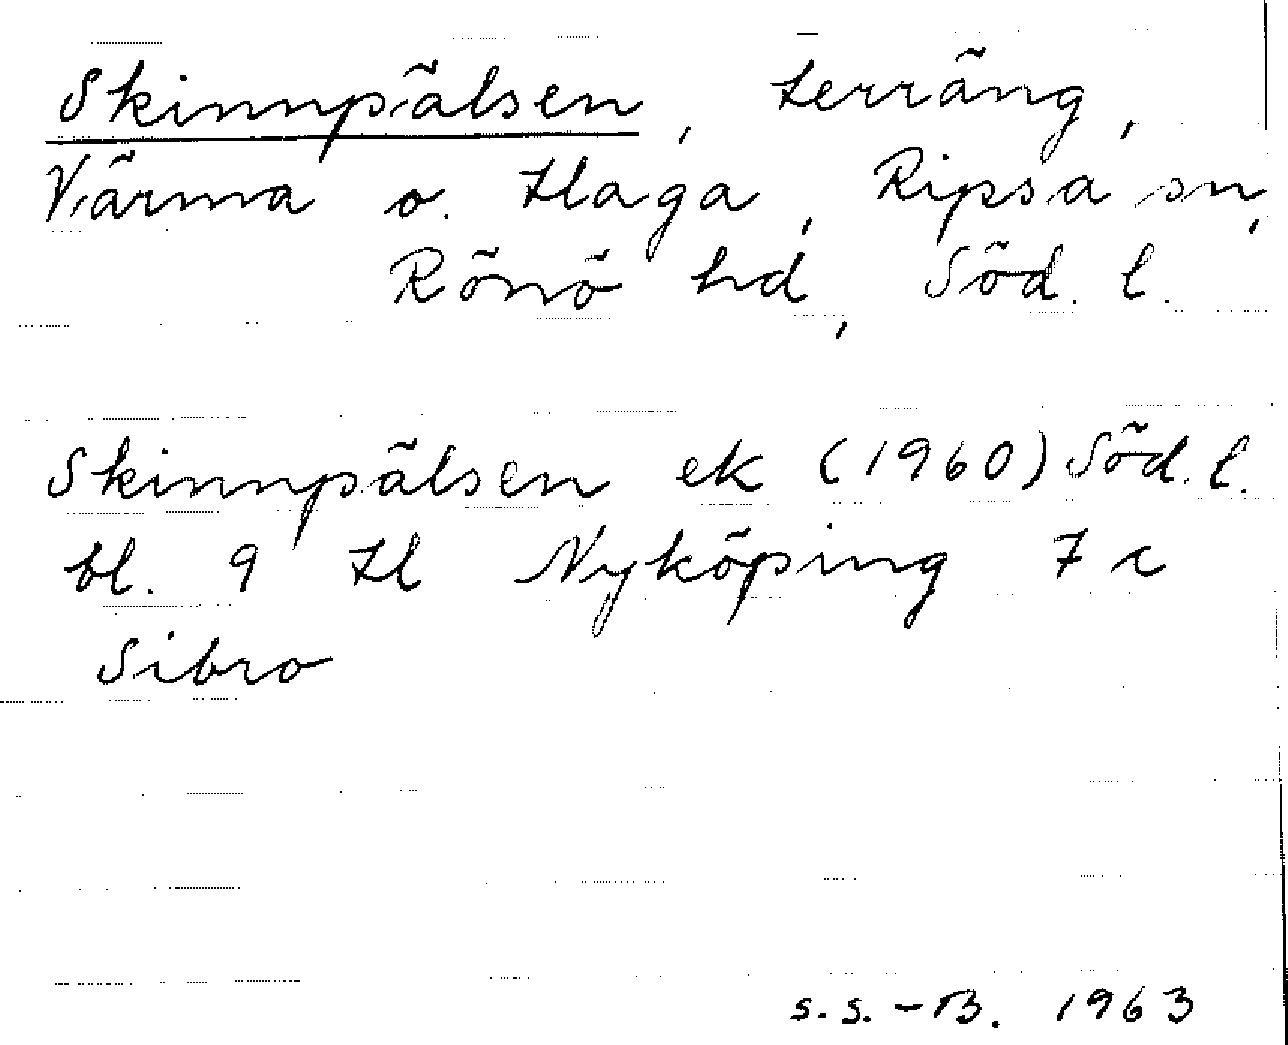 Skinnpälsen, terräng,
Värma o. Haga, Ripsa sn,
Rönö hd, Söd. l.
Skinnpälsen ek (1960) Söd. l.
bl. 9 H Nyköping 7 c
Sibro
S.S.-B. 1963